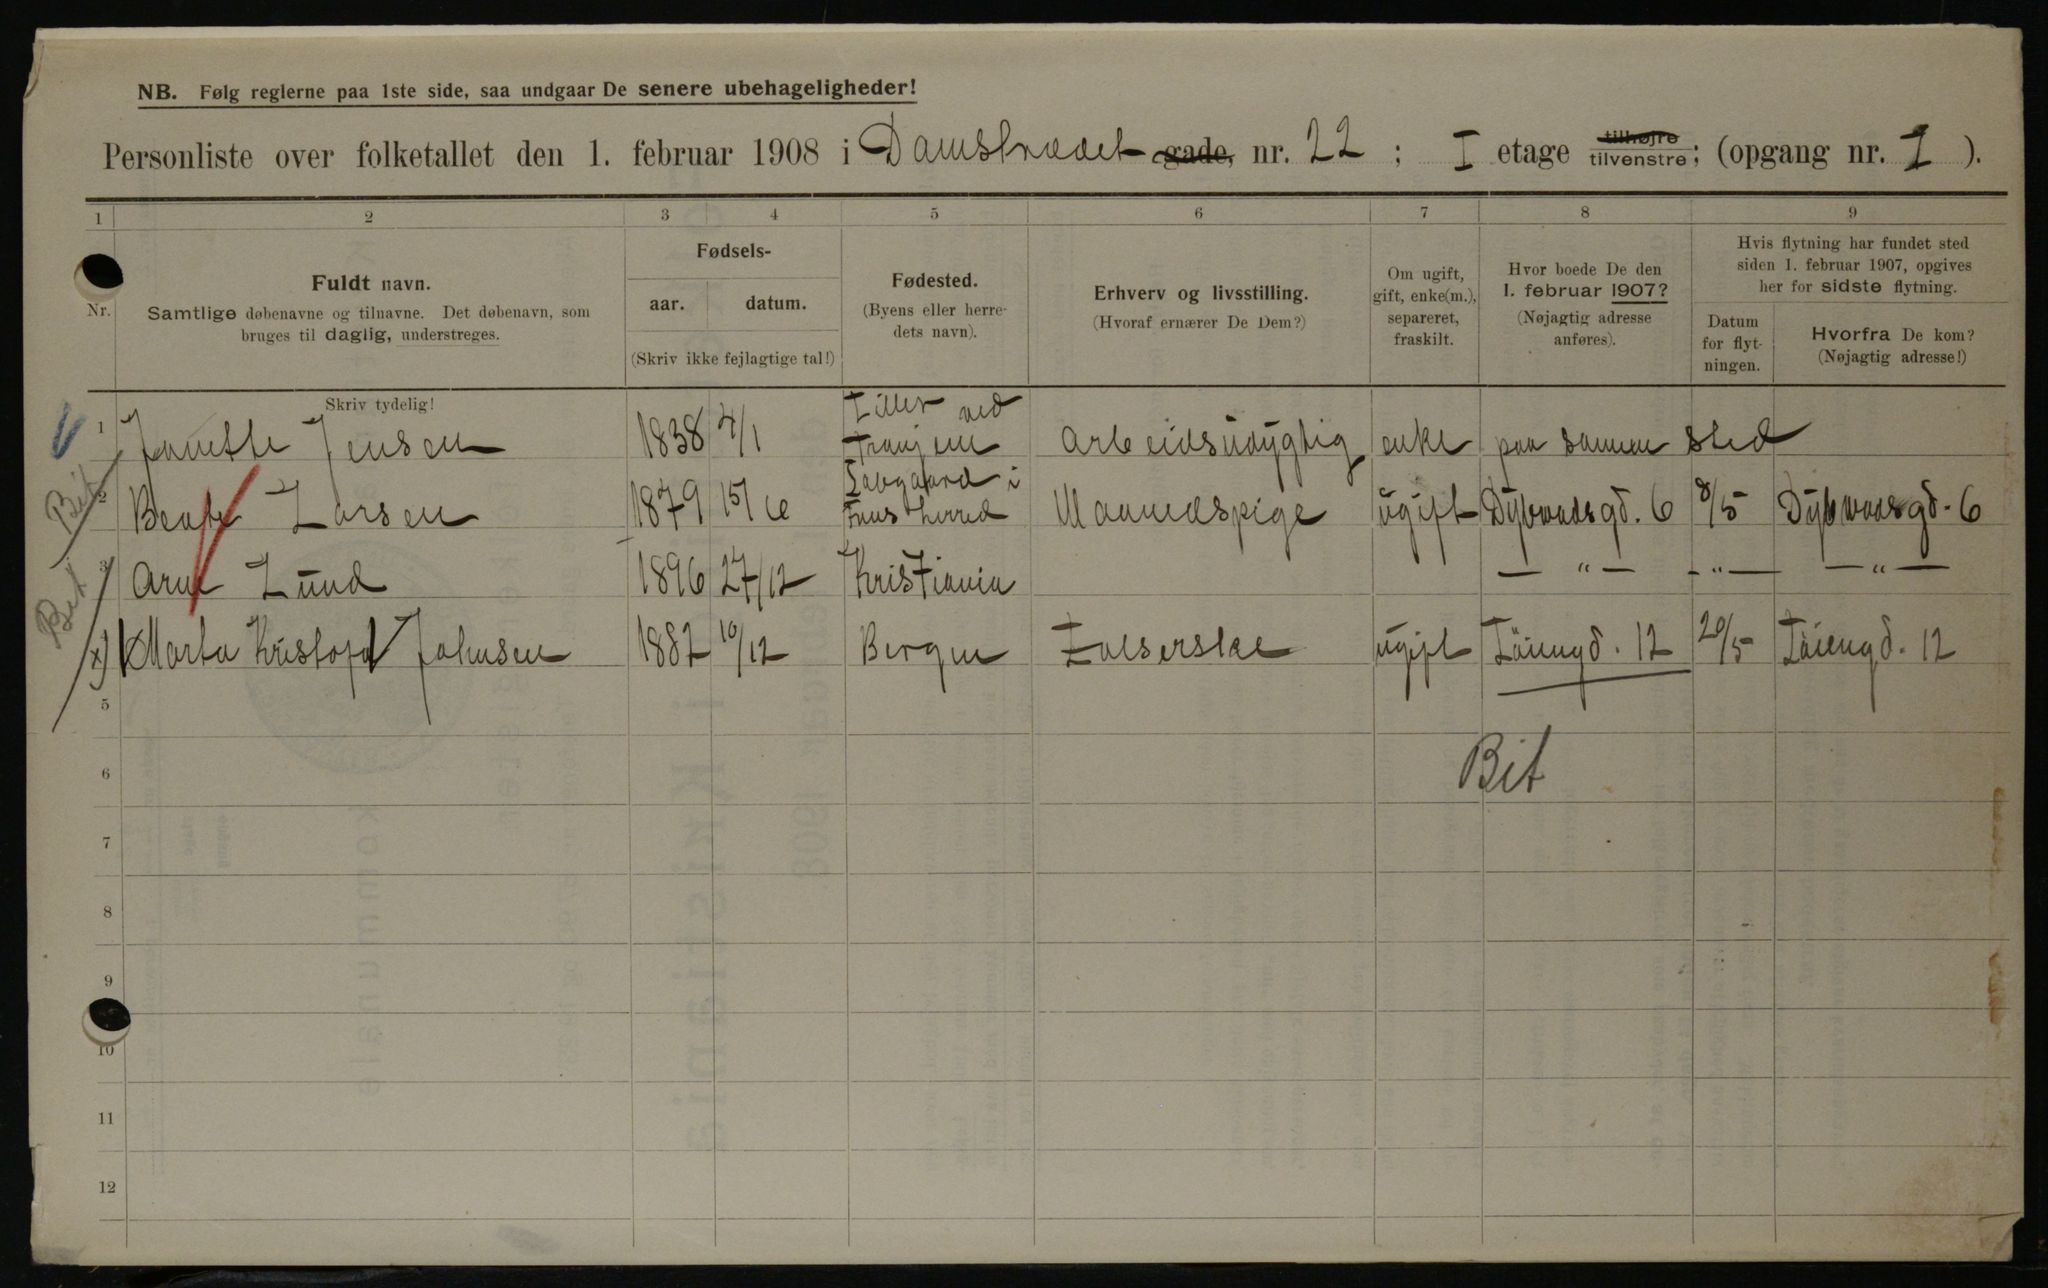 NB. Følg reglerne paa 1ste side, saa undgaar De senere ubehageligheder!
Personliste over folketallet den 1. februar 1908 i Damstrædet gade, nr. 22 ; I etage tilhøjre tilvenstre; (opgang nr. I ).
1 2 3 4 5 6 7 8 9
Nr.
Fuldt navn.
Samtlige døbenavne og tilnavne. Det døbenavn, som
bruges til daglig, understreges.
Fødsels-
aar. datum.
(Skriv ikke fejlagtige tal!)
Fødested.
(Byens eller herre-
dets navn).
Erhverv og livsstilling.
(Hvoraf ernærer De Dem?)
Om ugift,
gift, enke(m.),
separeret,
fraskilt.
Hvor boede De den
1. februar 1907?
(Nøjagtig adresse
anføres).
Hvis flytning har fundet sted
siden 1. februar 1907, opgives
her for sidste flytning.
Datum
for flyt-
ningen.
Hvorfra De kom?
(Nøjagtig adresse!)
Skriv tydelig!
1 Janette Jensen 1838 4/1 Tiller ved Tronjem Arbeidsudygtig enke paa samme sted
Bit
2 Beate Larsen 1879 15/6 i Fuus herred Maanedspige ugift Dybwadsgd. 6 8/5 Dybwadsgd. 6
3 Arne Lund 1896 27/12 Kristiania — " — — " — — " —
Bit
x) Marta Kristofa Johnsen 1882 10/12 Bergen Falserske ugift Töiengd. 12 20/5 Töiengd. 12
5
6 Bit
7
8
9
10
11
12